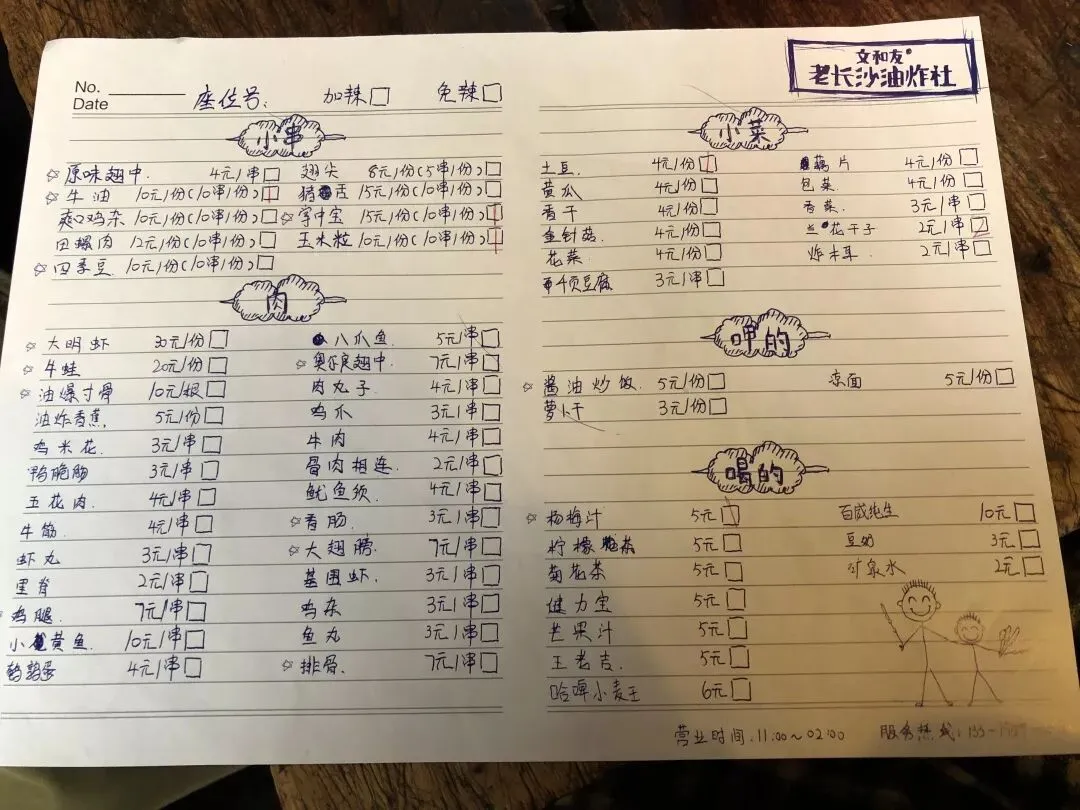 No.
Date
座位号: 加辣□ 免辣□
文和友
老长沙油炸社
小串
☆原味翅中. 4元/串□ 翅尖 8元/份(5串/份)□
☆牛油 10元/份(10串/份)□ 猪舌 15元/份(10串/份)□
爽口鸡杂 10元/份(10串/份)□ ☆掌中宝 15元/份(10串/份)□
田螺肉 12元/份(10串/份)□ 玉米粒 10元/份(10串/份)□
☆四季豆 10元/份(10串/份)□
肉
☆大明虾 30元/份□ 八爪鱼. 5元/串□
☆牛蛙 20元/份□ ☆奥尔良翅中. 7元/串□
☆油爆寸骨 10元/根□ 肉丸子 4元/串□
油炸香蕉. 5元/份□ 鸡爪 3元/串□
鸡米花. 3元/串□ 牛肉 4元/串□
鸭脆肠 3元/串□ 骨肉相连. 2元/串□
五花肉 4元/串□ 鱿鱼须. 4元/串□
牛筋. 4元/串□ ☆香肠. 3元/串□
虾丸 3元/串□ ☆大翅膀. 7元/串□
里脊 2元/串□ 基围虾. 3元/串□
鸡腿. 7元/串□ 鸡杂 3元/串□
小黄鱼. 10元/串□ 鱼丸 3元/串□
鹌鹑蛋 4元/串□ ☆排骨. 7元/串□
小菜
土豆. 4元/份□ 藕片 4元/份□
黄瓜 4元/份□ 包菜 4元/份□
香干 4元/份□ 香菜. 3元/串□
金针菇. 4元/份□ 兰花干子 2元/串□ 2
花菜 4元/份□ 炸木耳. 2元/串□
千页豆腐 3元/串□
呷的
☆酱油炒饭. 5元/份□ 凉面 5元/份□
萝卜干 3元/份□
喝的
☆杨梅汁 5元□ 百威纯生 10元□
柠檬茶 5元□ 豆奶 3元□
菊花茶 5元□ 矿泉水 2元□
健力宝 5元□
芒果汁 5元□
王老吉. 5元□
哈啤小麦王 6元□
营业时间:11:00~02:00 服务热线: